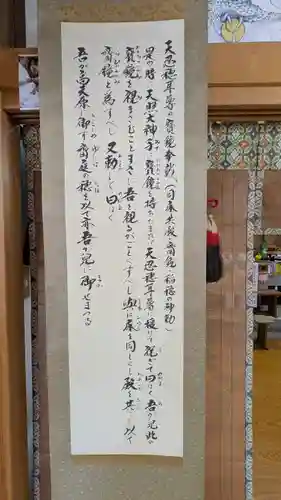 天忍穂耳尊の寳鏡奉斎(同床共殿斎鏡 稲穂の神勅)
是の時 天照大神手に寳鏡を持ちたまひて天忍穂耳尊に授けて祝ぎて曰はく吾が児此の
寳鏡を視まさむことまさに吾を視るがごとくすべし與に床を同じくし殿を共にし以て
齋鏡と為すべし 又勅して曰はく
吾が高天原に御す齋庭の穂を以て亦吾が児に御せまつる